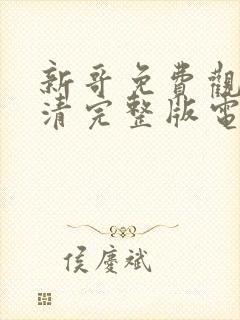 新哥免費觀
清完整版電
侯慶斌